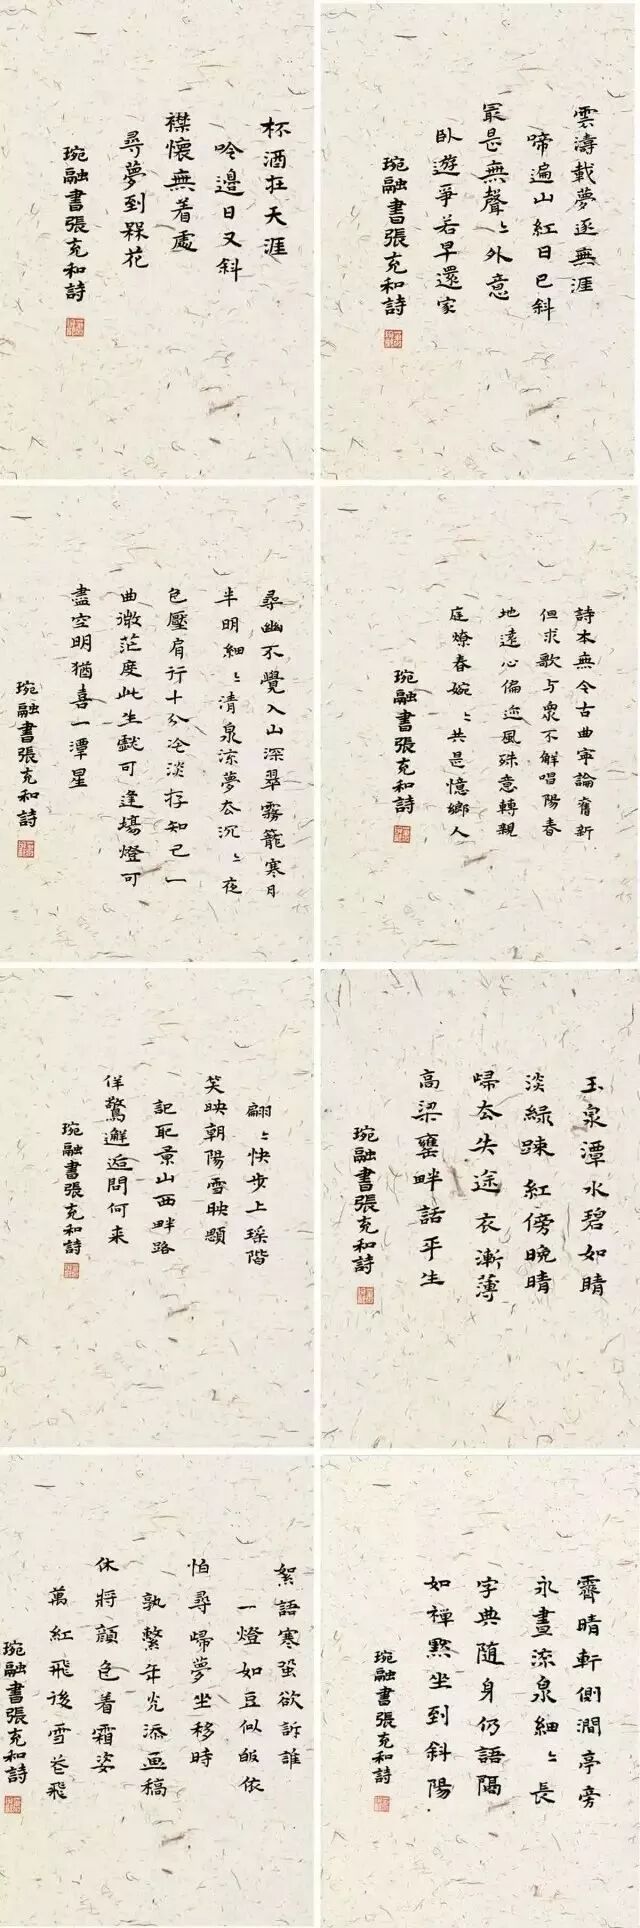 雲濤載夢逐無涯
啼遍山紅日已斜
最是無聲〻外意
臥遊爭若早還家
琬融書張充和詩
杯酒在天涯
吟邊日又斜
襟懷無着處
尋夢到槑花
琬融書張充和詩
詩本無今古曲寧論舊新
但求歌与衆不解唱陽春
地遠心偏迩風殊意轉親
庭燎春婉〻共是憶鄉人
琬融書張充和詩
尋幽不覺入山深翠霧籠寒月
半明細〻清泉涼夢去沉〻夜
色壓肩行十分冷淡存知己一
曲微茫度此生戲可逢場燈可
盡空明猶喜一潭星
琬融書張充和詩
玉泉潭水碧如睛
淡綠踈紅傍晚晴
歸去失途衣漸薄
高梁窰畔話平生
琬融書張充和詩
翩〻快步上瑤階
笑映朝陽雪映顋
記取景山西畔路
佯驚邂逅問何来
琬融書張充和詩
霽晴軒側澗亭旁
永晝流泉細〻長
字典隨身仍語隔
如禪默坐到斜陽
琬融書張充和詩
絮語寒蛩欲訴誰
一燈如豆似皈依
怕尋歸夢坐移時
孰繫年光添畫稿
休將顏色着霜姿
萬紅飛後雪花飛
琬融書張充和詩